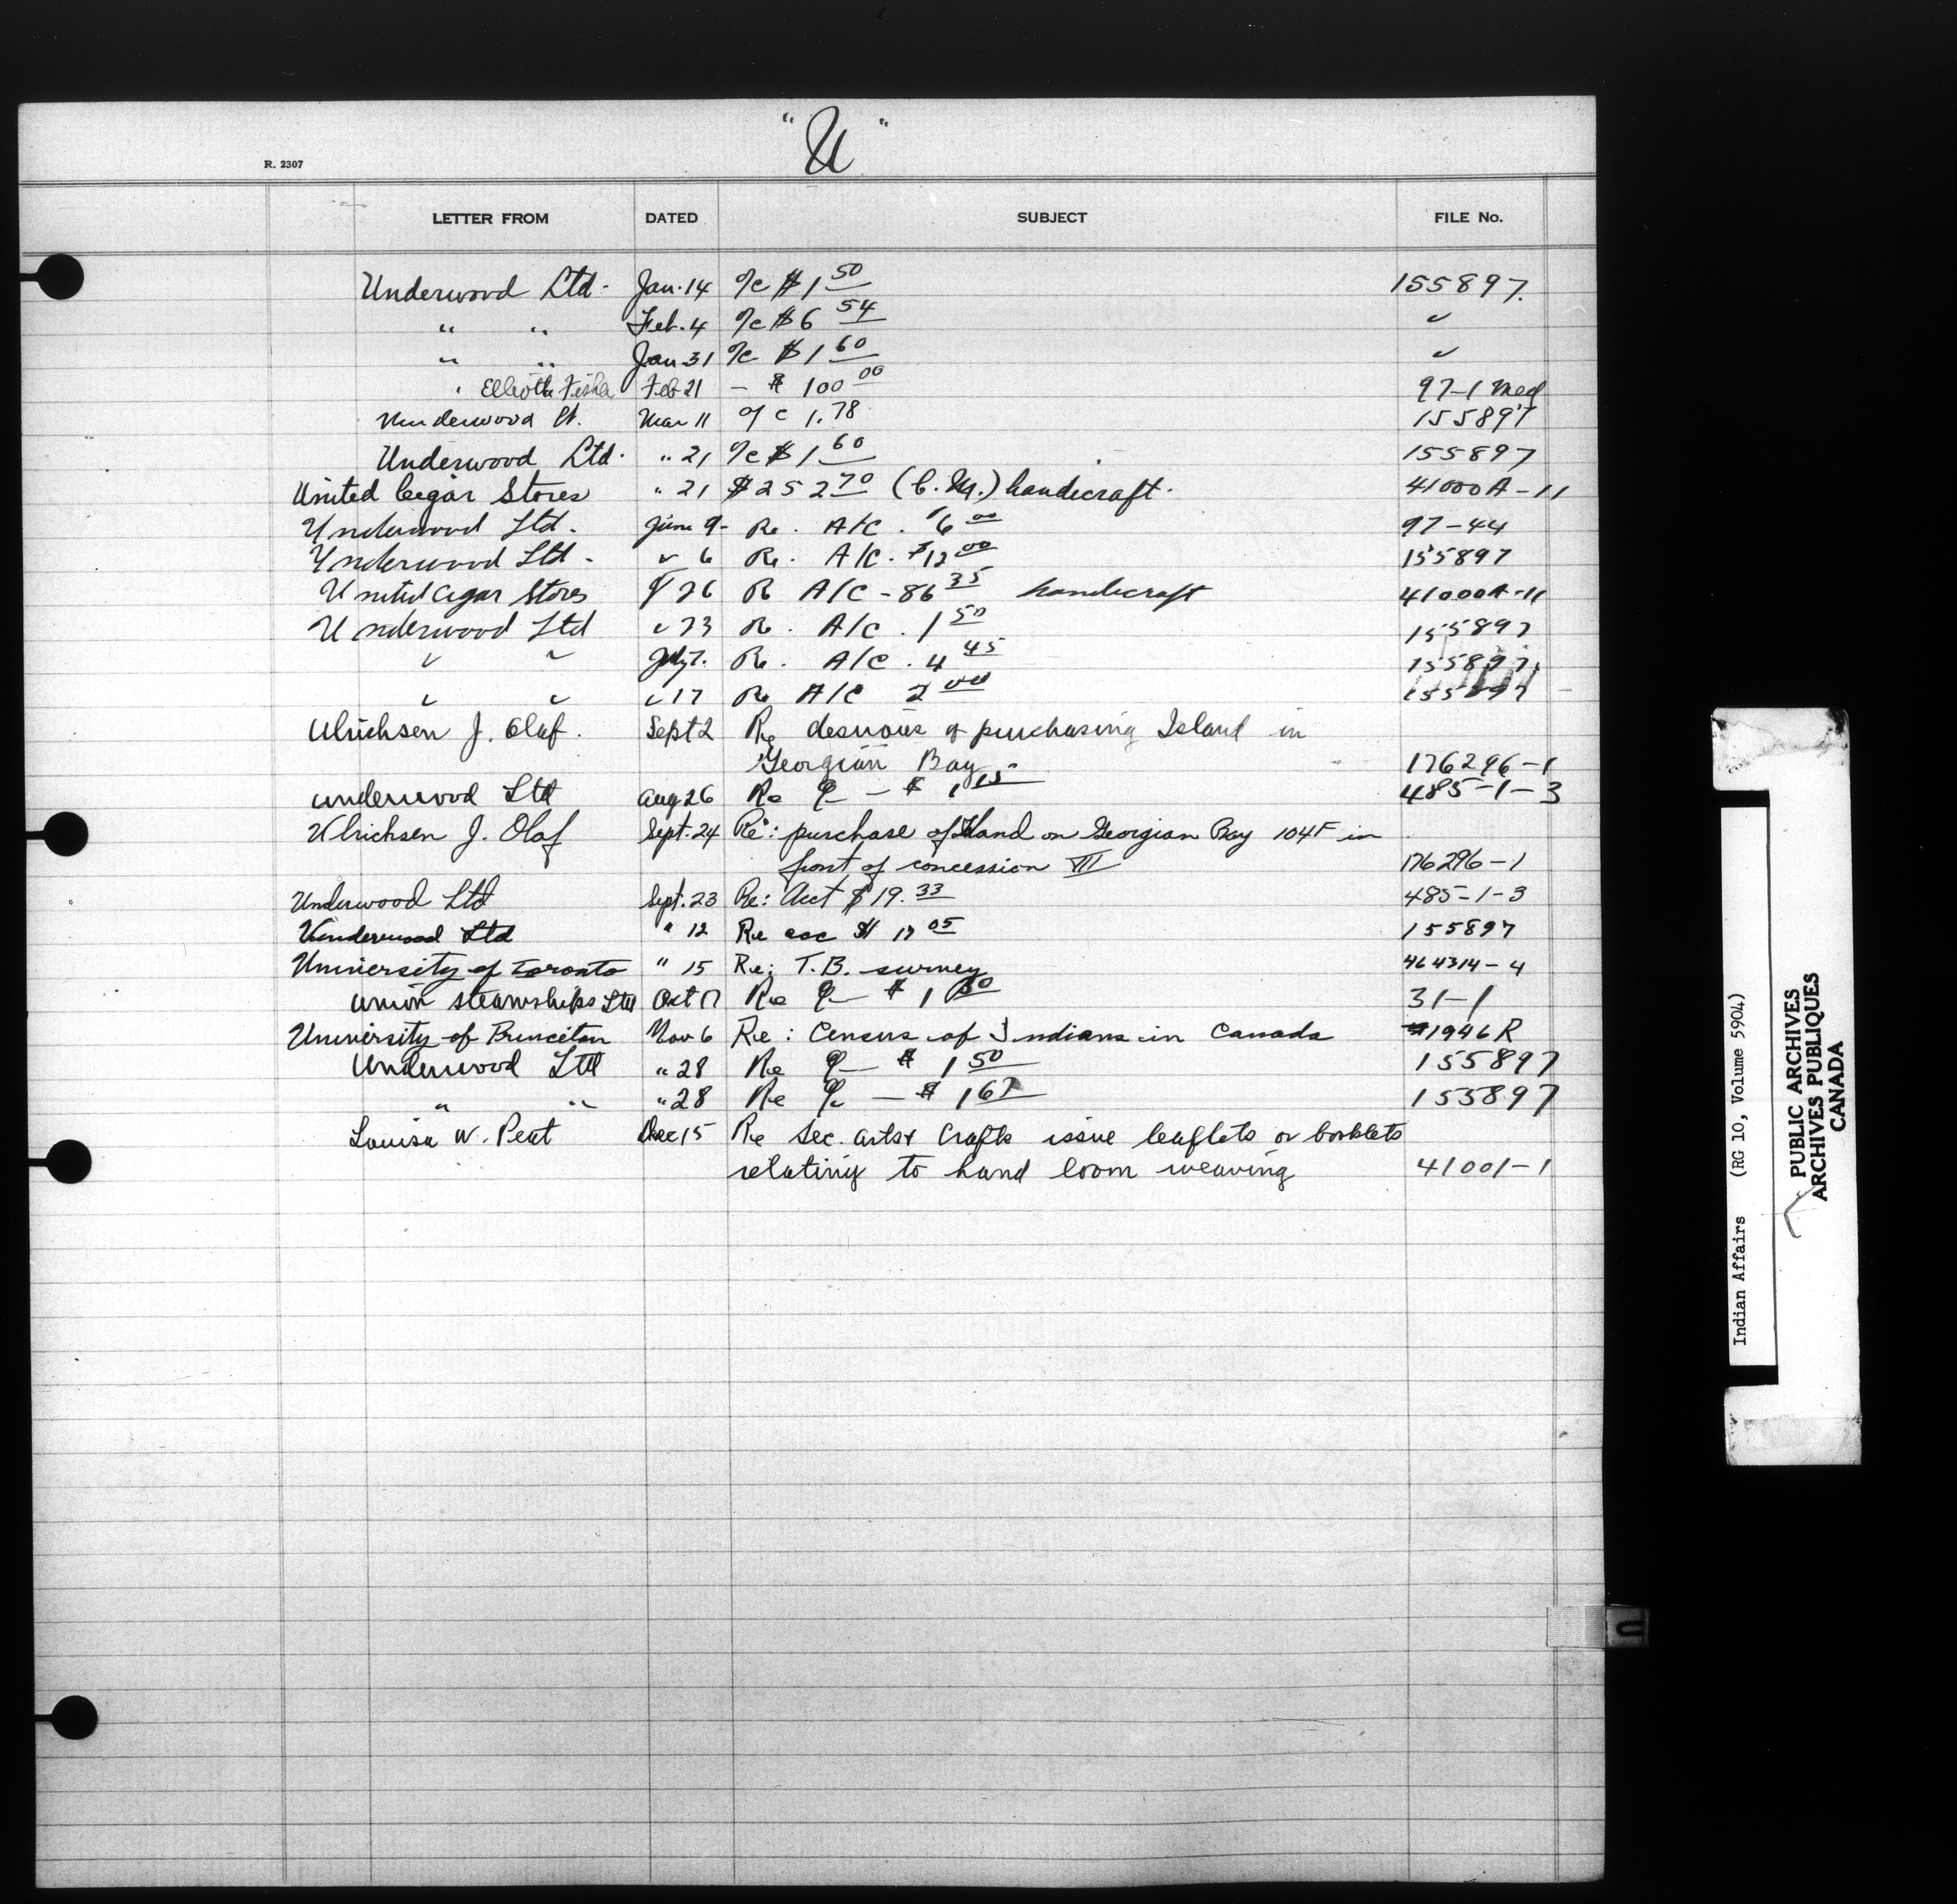 "U"
R. 2307
LETTER FROM DATED SUBJECT FILE No.
Underwood Ltd. Jan. 14 %c $1 50 155897.
" " Feb. 4 %c $6 54 "
" " Jan 31 %c $1 60 "
" Elliott Fisher Feb 21 — $ 100 00 97-1 Med
Underwood Mar 11 %c 1.78 155897
Underwood Ltd. " 21 %c $1 60 155897
United Cigar Stores " 21 $252 70 (C.M.) handicraft. 41000A-11
Underwood Ltd. June 9- Re. A/C. $6 00 97-44
Underwood Ltd - " 6 Re. A/C. $12 00 155897
United Cigar Stores 26 Re A/C - 86 35 handicraft 41000A-11
Underwood Ltd " 23 Re. A/C. 1 50 155897
" " July 7. Re. A/C. 4 45 155897
" " " 17 Re A/C 2 00 155897
Ulrichsen J. Olaf. Sept 2 Re desirous of purchasing Island in
Georgian Bay 176296-1
Underwood Ltd Aug 26 Re %c — $ 1 15 485-1-3
Ulrichsen J. Olaf Sept. 24 Re: purchase of Island on Georgian Bay 104F in
front of concession VII 176296-1
Underwood Ltd Sept. 23 Re: Acct $19.33 485-1-3
Underwood Ltd " 12 Re acc $ 17 05 155897
University of Toronto " 15 Re: T.B. survey 464314-4
Union Steamships Ltd Oct 17 Re %c — $ 1 31-1
University of Princeton Nov 6 Re: Census of Indians in Canada 1946R
Underwood Ltd " 28 Re %c — $ 1 50 155897
" " " 28 Re %c — $ 1 155897
Louisa W. Peat Dec 15 Re Sec. arts & Crafts issue leaflets or booklets
relating to hand loom weaving 41001-1
Indian Affairs (RG 10, Volume 5904)
PUBLIC ARCHIVES
ARCHIVES PUBLIQUES
CANADA
U